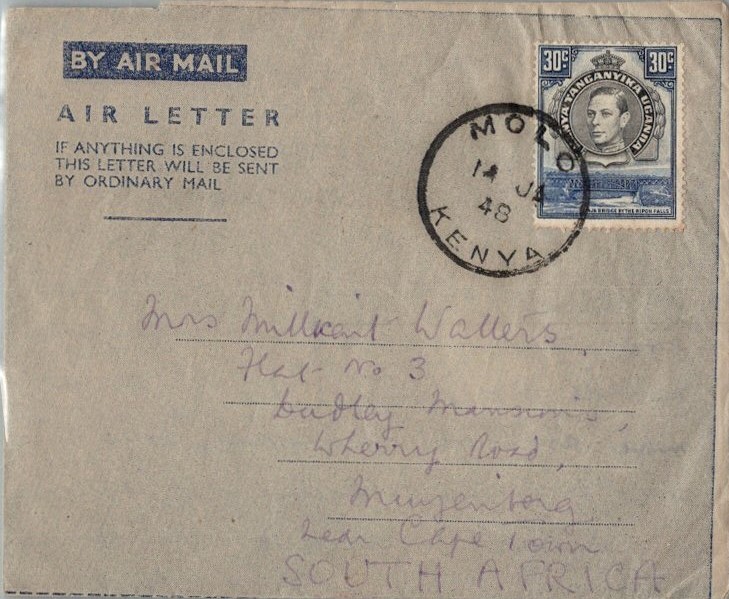 BY AIR MAIL
AIR LETTER
IF ANYTHING IS ENCLOSED
THIS LETTER WILL BE SENT
BY ORDINARY MAIL
30c 30c
TANGANYIKA UGANDA
BRIDGE BY THE RIPON FALLS
MOLO
14 JA
48
KENYA
Mrs Walters
Flat No 3
Dudley Mansions,
Wherry Road,
Muizenberg
Near Cape Town
SOUTH AFRICA